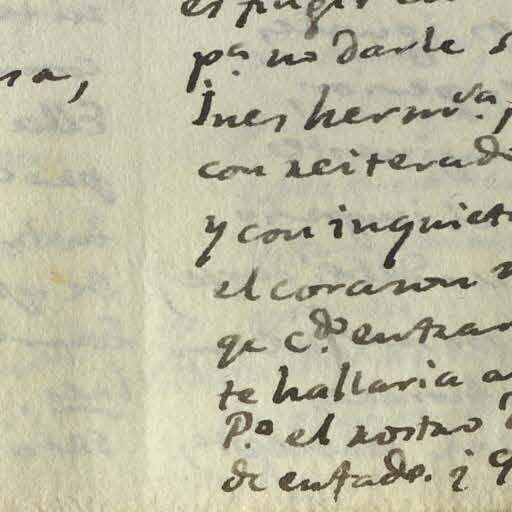 pª no darle
sa,
Ines hermvª.
con reiterad
y con inquiet
el corason
qe cdo. entrar
te hallaria a
P.o el rostro
de enfado. i q